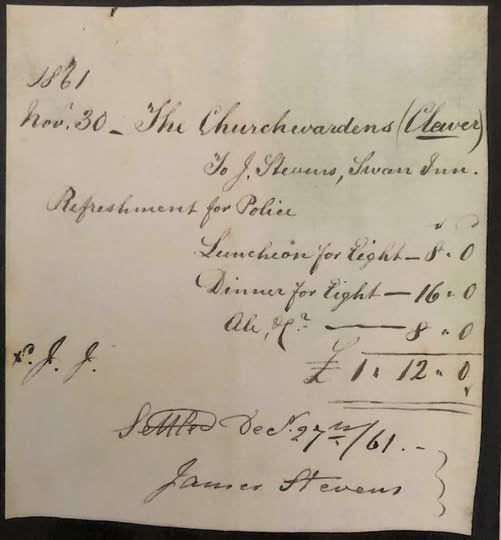 1861
Novr. 30 - The Churchwardens (Clewer)
To J. Stevens, Swan Inn.
Refreshment for Police
s d
Luncheon for Eight - 8 " 0
Dinner for Eight - 16 " 0
Ale, &c. - 8 " 0
J. J.
£ 1 " 12 " 0
Settled Decr. 27th/61. -
James Stevens